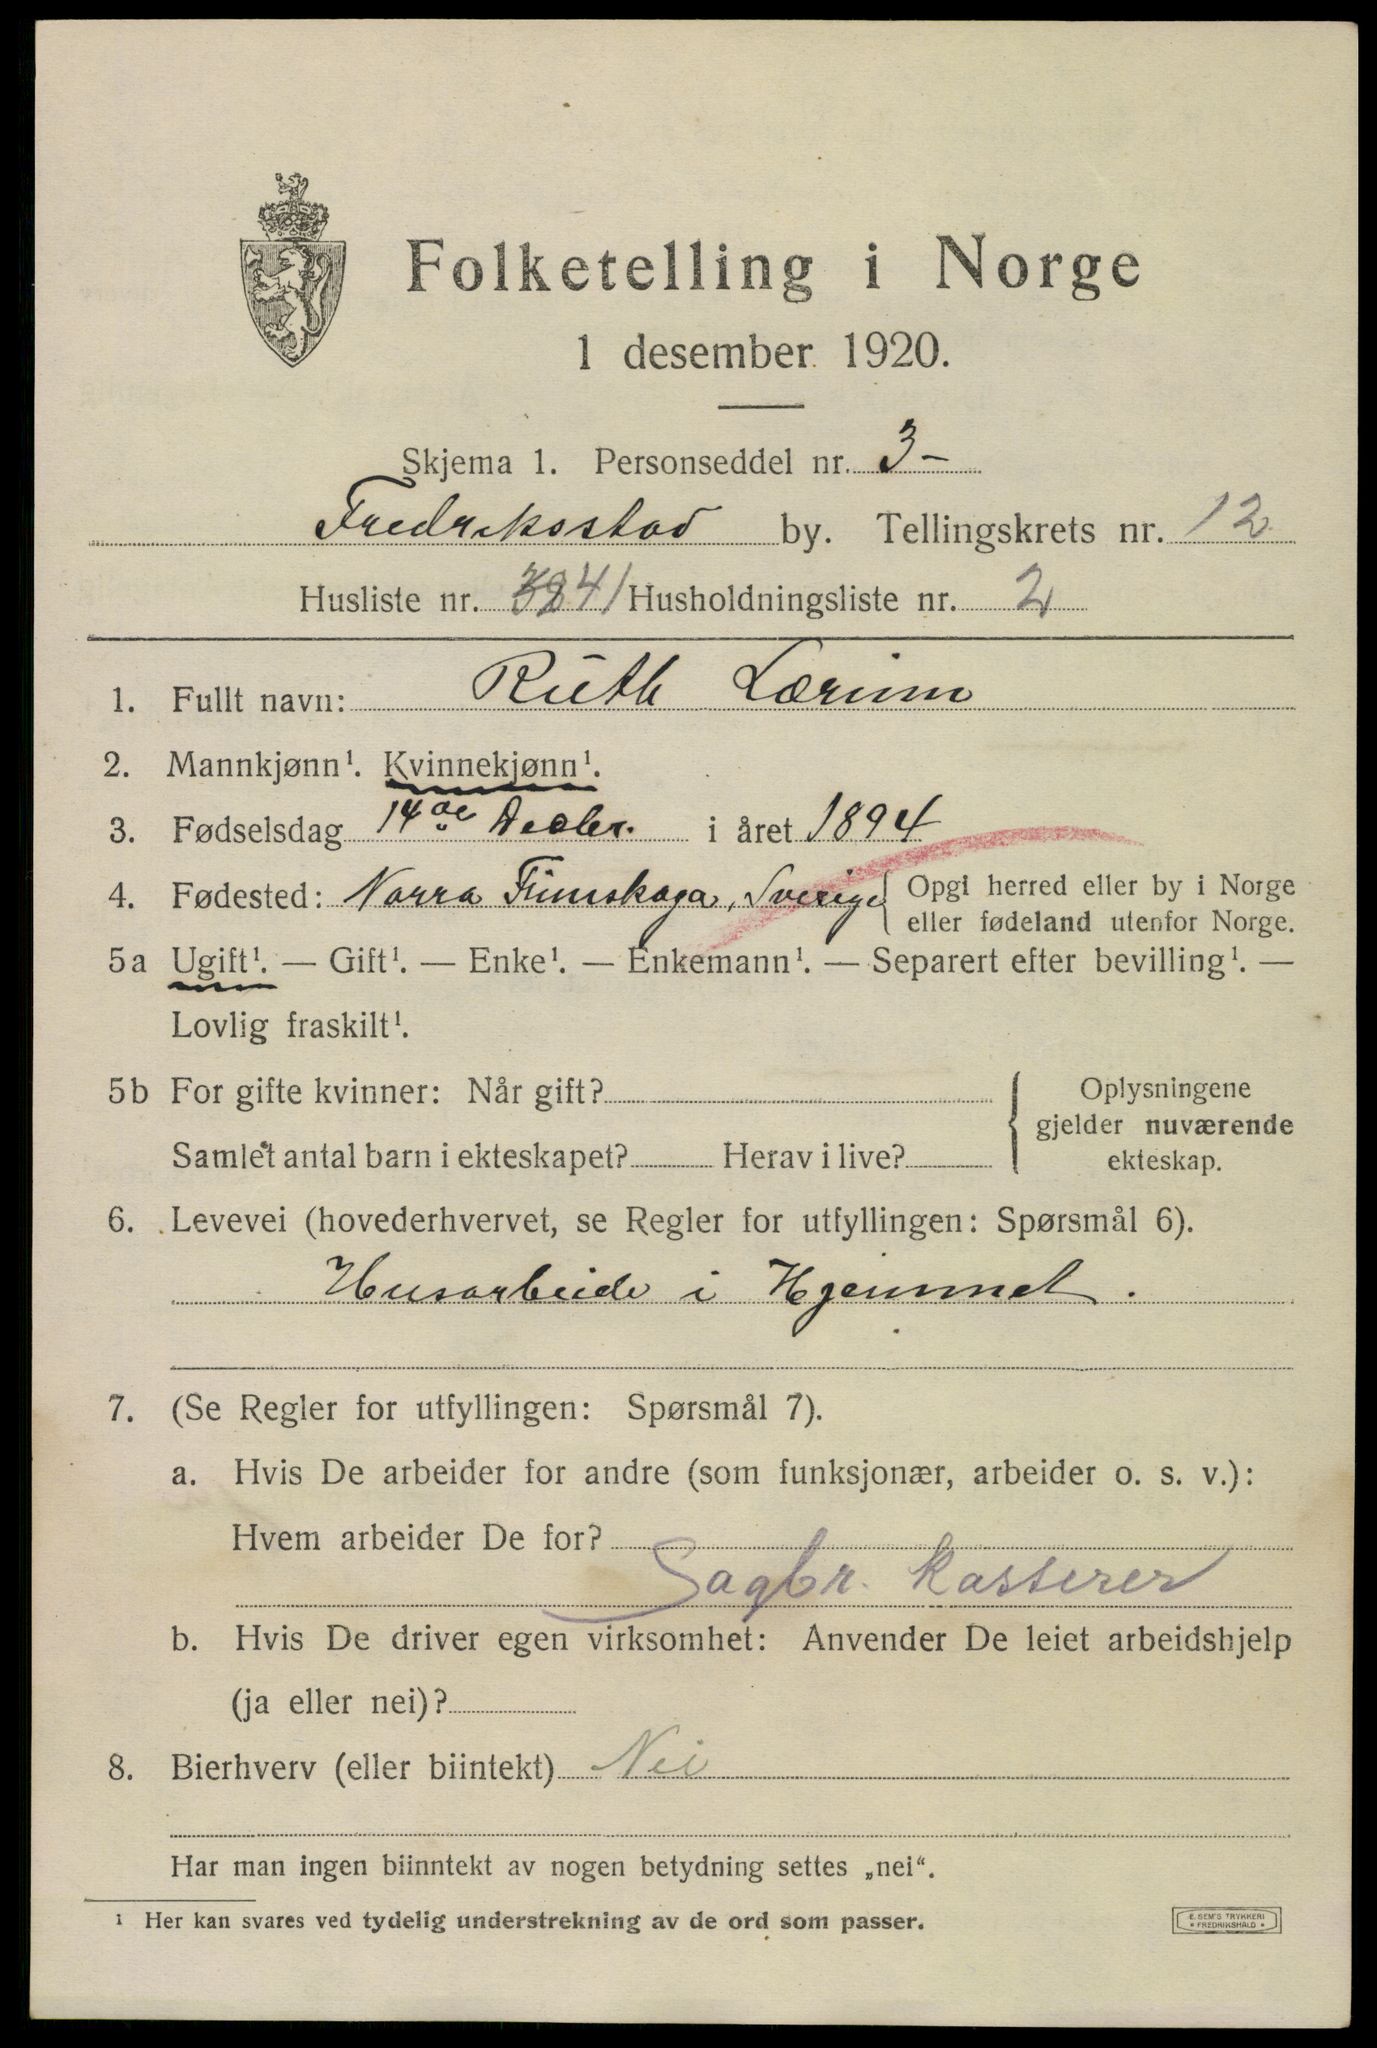 Folketelling i Norge
1 desember 1920.
Skjema 1. Personseddel nr. 3-
Fredriksstad by. Tellingskrets nr. 12
Husliste nr. 41 Husholdningsliste nr. 2
1. Fullt navn: Ruth Lærum
2. Mannkjønn¹. Kvinnekjønn¹.
3. Fødselsdag 14de Decbr. i året 1894
4. Fødested: Norra Finnskoga, Sverige { Opgi herred eller by i Norge
eller fødeland utenfor Norge.
5a Ugift¹. — Gift¹. — Enke¹. — Enkemann¹. — Separert efter bevilling¹. —
Lovlig fraskilt¹.
5b For gifte kvinner: Når gift?
Samlet antal barn i ekteskapet? Herav i live?
Oplysningene
gjelder nuværende
ekteskap.
6. Levevei (hovederhvervet, se Regler for utfyllingen: Spørsmål 6).
Husarbeide i Hjemmet.
7. (Se Regler for utfyllingen: Spørsmål 7).
a. Hvis De arbeider for andre (som funksjonær, arbeider o. s. v.):
Hvem arbeider De for?
Sagbr. kasserer
b. Hvis De driver egen virksomhet: Anvender De leiet arbeidshjelp
(ja eller nei)?
8. Bierhverv (eller biintekt) Nei
Har man ingen biinntekt av nogen betydning settes „nei“.
¹ Her kan svares ved tydelig understrekning av de ord som passer.
E. SEM'S TRYKKERI
* FREDRIKSHALD *